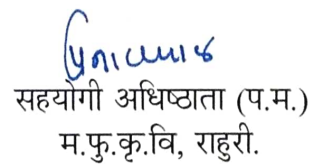 सहयोगी अधिष्ठाता (प.म.)
म.फु.कृ.वि, राहुरी.